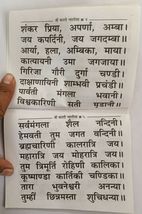 श्री आरती महागीत
शंकर प्रिया, अपर्णा, अम्बा।
जय कपर्दिनी, जय जगदम्बा।।
आर्या, हला, अम्बिका, माया।
कात्यायनी उमा जगजाया।।
गिरिजा गौरी दुर्गा चण्डी।
दाक्षाणायिनी शाम्भवी प्रचंडी।।
पार्वती मंगला भवानी।
विश्वकारिणी सती मृडानी।।
सर्वमंगला शैल नन्दिनी।
हेमवती तुम जगत वन्दिनी।।
ब्रह्मचारिणी कालरात्रि जय।
महारात्रि जय मोहरात्रि जय।।
तुम त्रिमूर्ति रोहिणी कालिका।
कूष्माण्डा कार्तिकी चण्डिका।।
तारा भुवनेश्वरी अनन्या।
तुम्हीं छिन्नमस्ता शुचिधन्या।।